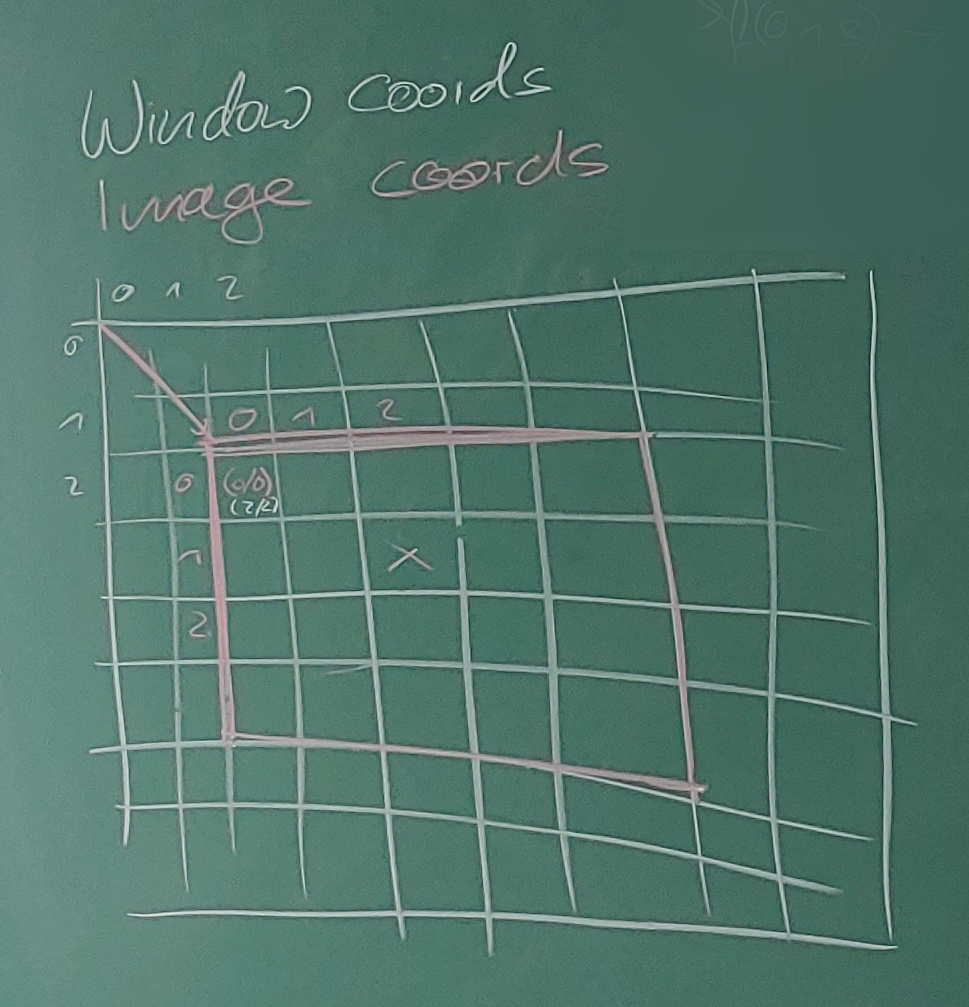 Window coords
Image coords
0 1 2
0
1
0 1 2
2
0 (0/0)
(2/2)
1
X
2